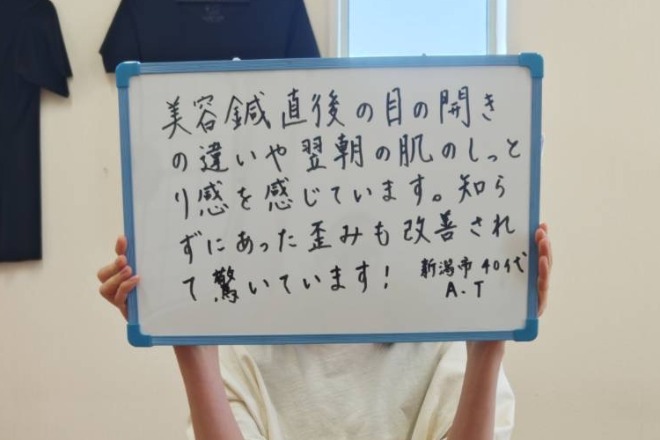 美容鍼直後の目の開き
の違いや翌朝の肌のしっと
り感を感じています。知ら
ずにあった歪みも改善され
て驚いています!
新潟市 40代
A.T